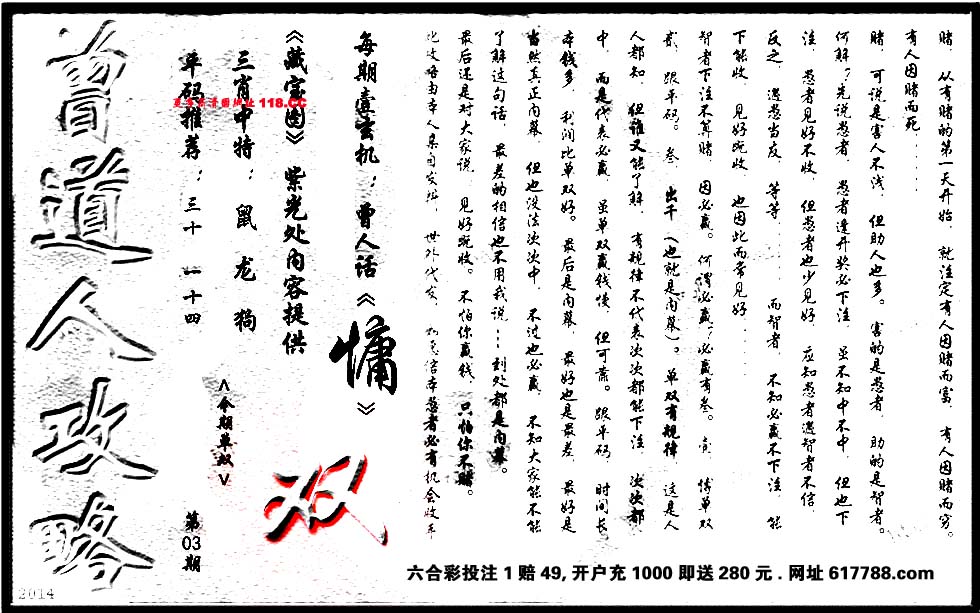 赌．从有赌的第一天开始．就注定有人因赌而富．有人因赌而穷。
有人因赌而死......
赌．可说是害人不浅．但助人也多。害的是愚者．助的是智者。
何解?先说愚者．愚者逢开奖必下注．虽不知中不中．但也下
注．愚者见好不收．但愚者也少见好．应知愚者遇智者不信．
反之．遇愚当友．等等......而智者．不知必赢不下注．能
下能收．见好既收．也因此而常见好......
智者下注不算赌．因必赢。何谓必赢?必赢有叁。壹．博单双
贰．跟平码。叁．出千（也就是内幕）。单双有规律．这是人
人都知．但谁又能了解．有规律不代表次次都能下注．次次都
中．而是代表必赢．虽单双赢钱慢．但可靠。跟平码．时间长．
本钱多．利润比单双好。最后是内幕．最好也是最差．最好是
当然真正内幕．但也没法次次中．不过也必赢．不知大家能不能
了解这句话．最差的相信也不用我说...到处都是内幕。
最后还是对大家说．见好既收。不怕你赢钱．只怕你不赌。
此攻略由本人亲自发放．世外代发．相信本愚者必有机会收手
每期壹玄机：曾人话《慵》
《藏宝图》紫光处内容提供
三肖中特：鼠 龙 狗
单码推荐：三十 一十四
118.CC
<今期单双>
双
第03期
曾道人攻略
2014
六合彩投注1赔49,开户充1000即送280元.网址617788.com